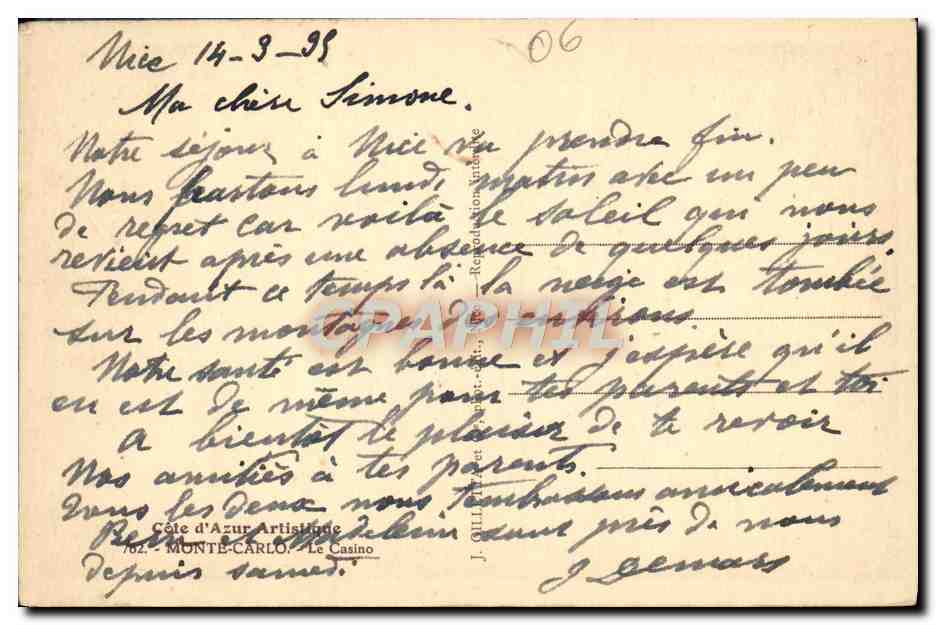 06
Nice 14-3-35
Ma chère Simone.
Notre séjour à Nice va prendre fin.
Nous partons lundi matin avec un peu
de regret car voilà le soleil qui nous
revient après une absence de quelques jours.
Pendant ce temps là la neige est tombée
sur les montagnes des environs.
Notre santé est bonne et j'espère qu'il
en est de même pour tes parents et toi
A bientôt le plaisir de te revoir
Nos amitiés à tes parents.
Tous les deux nous t'embrassons amicalement
et Madeleine sont près de nous
depuis samedi.
J Demars
Côte d'Azur Artistique
762. - MONTE-CARLO. - Le Casino
J. GILLETTA et phot.-édit., Nice — Reproduction interdite
CPAPHIL